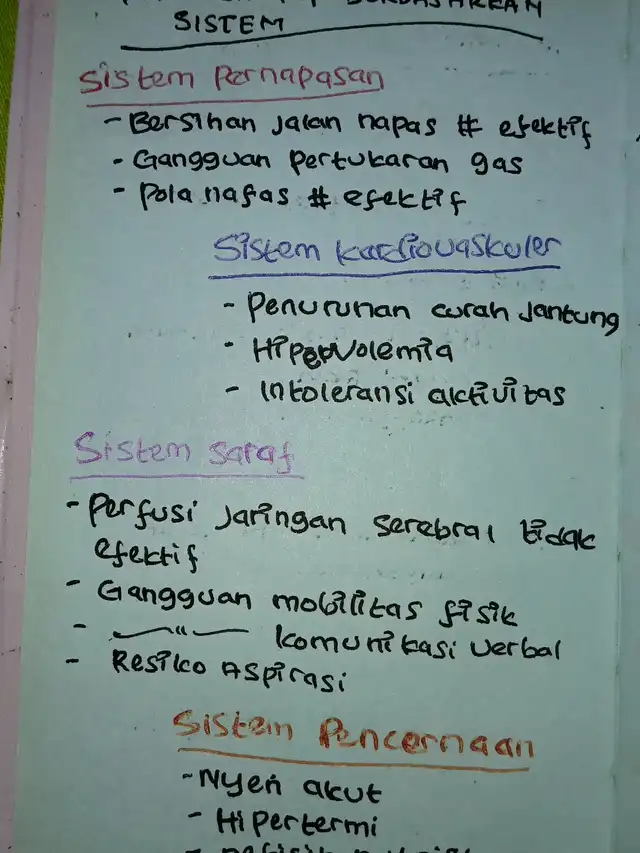 BERDASARKAN
SISTEM
Sistem Pernapasan
- Bersihan jalan napas # efektif
- Gangguan pertukaran gas
- Pola nafas # efektif
Sistem Kardiovaskuler
- Penurunan curah jantung
- Hipervolemia
- Intoleransi aktivitas
Sistem saraf
- Perfusi jaringan serebral tidak
efektif
- Gangguan mobilitas fisik
- —"— komunikasi verbal
- Resiko Aspirasi
Sistem Pencernaan
- Nyeri akut
- Hipertermi